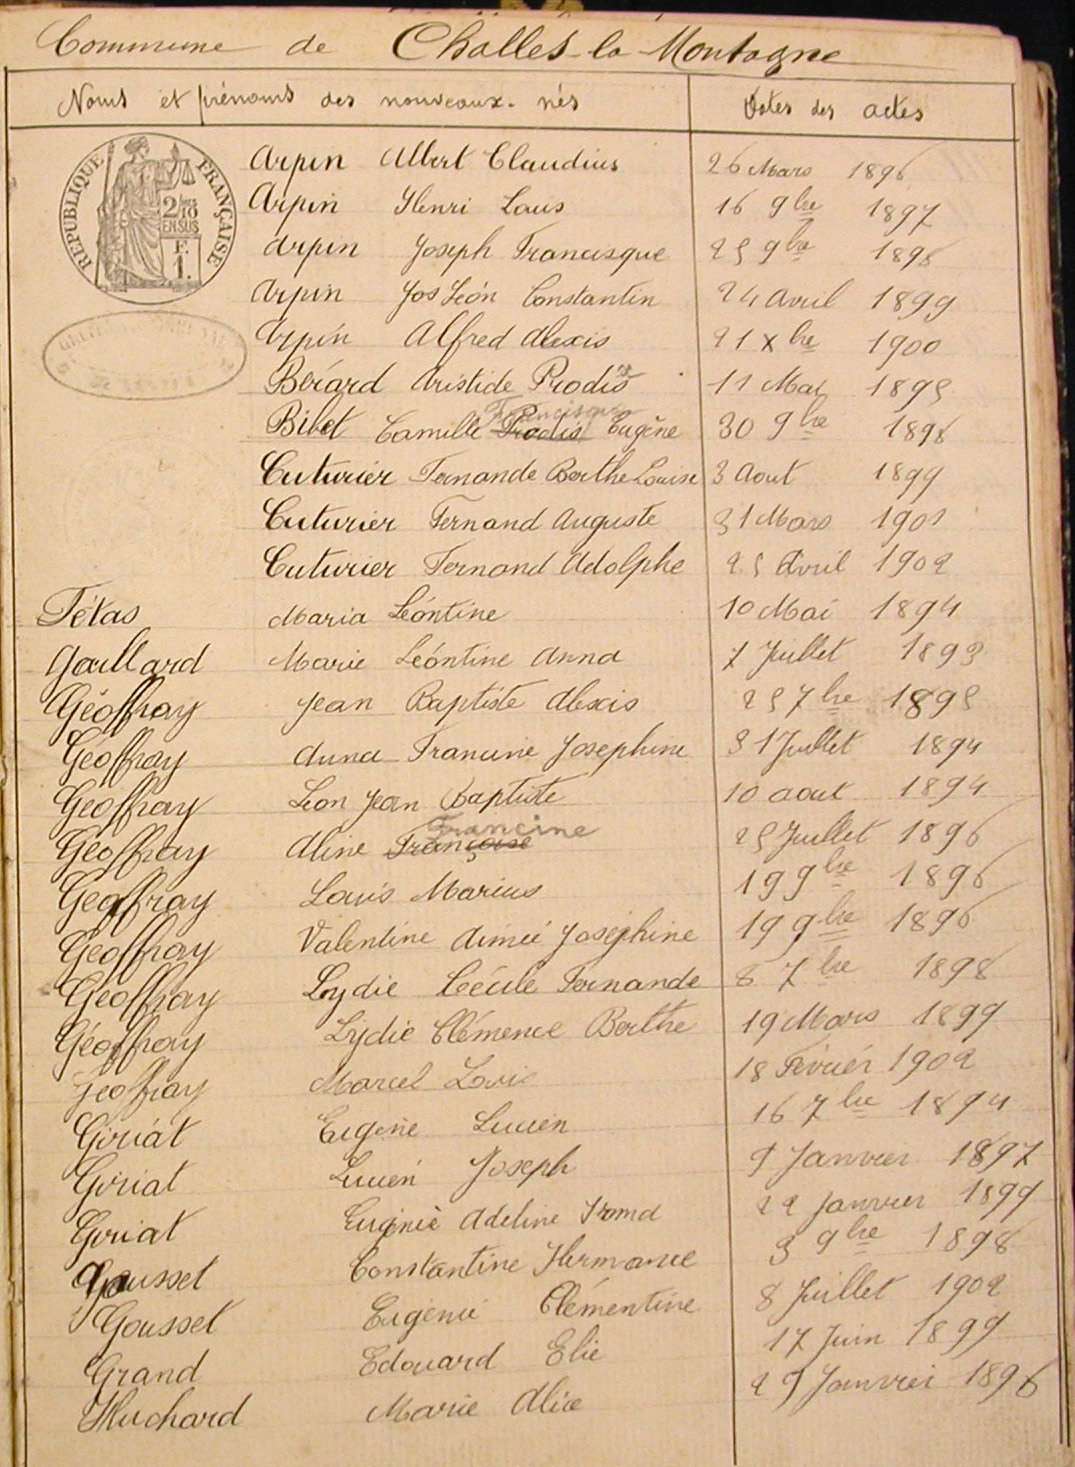 Commune de Challes-la Montagne
Noms et prénoms des nouveaux-nés Dates des actes
RÉPUBLIQUE FRANÇAISE
2/10 EN SUS
F. 1.
Arpin Albert Claudius 26 Mars 1896
Arpin Henri Louis 16 9bre 1897
Arpin Joseph Francisque 25 9bre 1898
Arpin Jos Léon Constantin 24 Avril 1899
Arpin Alfred Alexis 21 Xbre 1900
Bérard Aristide Prodis 11 Mai 1895
Bilet Camille Francisque Eugène 30 9bre 1898
Cuturier Fernande Berthe Louise 3 Aout 1899
Cuturier Fernand Auguste 31 Mars 1901
Cuturier Fernand Adolphe 25 Avril 1902
Fétas Maria Léontine 10 Mai 1894
Gaillard Marie Léontine Anna 7 Juillet 1893
Géoffray Jean Baptiste Alexis 25 7bre 1895
Géoffray Anna Francine Josephine 31 Juillet 1894
Géoffray Léon Jean Baptiste 10 aout 1894
Géoffray Aline Françoise Francine 25 Juillet 1896
Géoffray Louis Marius 19 9bre 1896
Géoffray Valentine Aimée Joséphine 19 9bre 1896
Géoffray Lydie Cécile Fernande 8 7bre 1898
Géoffray Lydie Clémence Berthe 19 Mars 1899
Geoffray Marcel Louis 18 Février 1902
Goriat Eugène Lucien 16 7bre 1894
Goriat Lucien Joseph 9 Janvier 1897
Goriat Eugénie Adeline 22 Janvier 1899
Gousset Constantine Hermance 3 9bre 1898
Gousset Eugénie Clémentine 8 Juillet 1902
Grand Edouard Elie 17 Juin 1899
Huchard Marie Alice 29 Janvier 1896